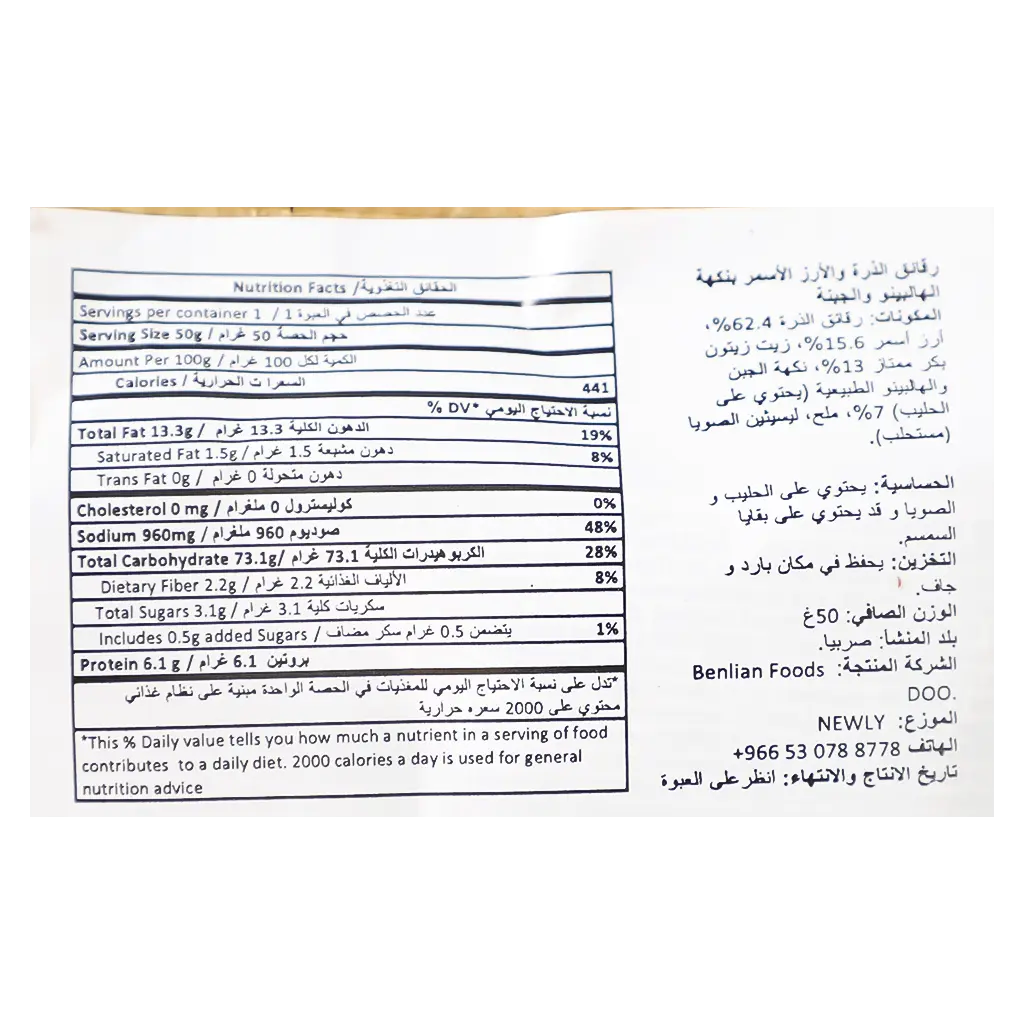 Nutrition Facts /الحقائق التغذوية
Servings per container 1 / عدد الحصص في العبوة 1
Serving Size 50g / حجم الحصة 50 غرام
Amount Per 100g / الكمية لكل 100 غرام
Calories / السعرات الحرارية 441
% DV* نسبة الاحتياج اليومي
Total Fat 13.3g / الدهون الكلية 13.3 غرام 19%
Saturated Fat 1.5g / دهون مشبعة 1.5 غرام 8%
Trans Fat 0g / دهون متحولة 0 غرام
Cholesterol 0 mg / كوليسترول 0 ملغرام 0%
Sodium 960mg / صوديوم 960 ملغرام 48%
Total Carbohydrate 73.1g/ الكربوهيدرات الكلية 73.1 غرام 28%
Dietary Fiber 2.2g / الألياف الغذائية 2.2 غرام 8%
Total Sugars 3.1g / سكريات كلية 3.1 غرام
Includes 0.5g added Sugars / يتضمن 0.5 غرام سكر مضاف 1%
Protein 6.1 g / بروتين 6.1 غرام
*تدل على نسبة الاحتياج اليومي للمغذيات في الحصة الواحدة مبنية على نظام غذائي
محتوي على 2000 سعره حرارية
*This % Daily value tells you how much a nutrient in a serving of food
contributes to a daily diet. 2000 calories a day is used for general
nutrition advice
رقائق الذرة والأرز الأسمر بنكهة
الهالبينو والجبنة
المكونات: رقائق الذرة 62.4%،
أرز أسمر 15.6%، زيت زيتون
بكر ممتاز 13%، نكهة الجبن
والهالبينو الطبيعية (يحتوي على
الحليب) 7%، ملح، ليسيثين الصويا
(مستحلب).
الحساسية: يحتوي على الحليب و
الصويا و قد يحتوي على بقايا
السمسم.
التخزين: يحفظ في مكان بارد و
جاف.
الوزن الصافي: 50غ
بلد المنشأ: صربيا.
الشركة المنتجة: Benlian Foods
DOO.
الموزع: NEWLY
الهاتف 8778 078 53 966+
تاريخ الانتاج والانتهاء: انظر على العبوة